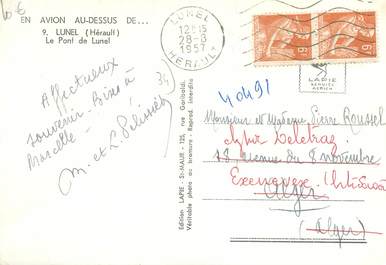 10€
EN AVION AU-DESSUS DE...
9. LUNEL (Hérault)
Le Pont de Lunel
LUNEL
12H15
28-3
1957
HERAULT
6F
6F
LAPIE
SERVICE
AERIEN
34
40491
Affectueux
souvenir. Bises à
Marcelle -
M. et L. Pélissier
Edition LAPIE - St-MAUR - 125, rue Garibaldi.
Véritable photo au bromure - Reprod. interdite
Monsieur et Madame Pierre Roussel
18 avenue du 8 novembre
Alger
(Alger)